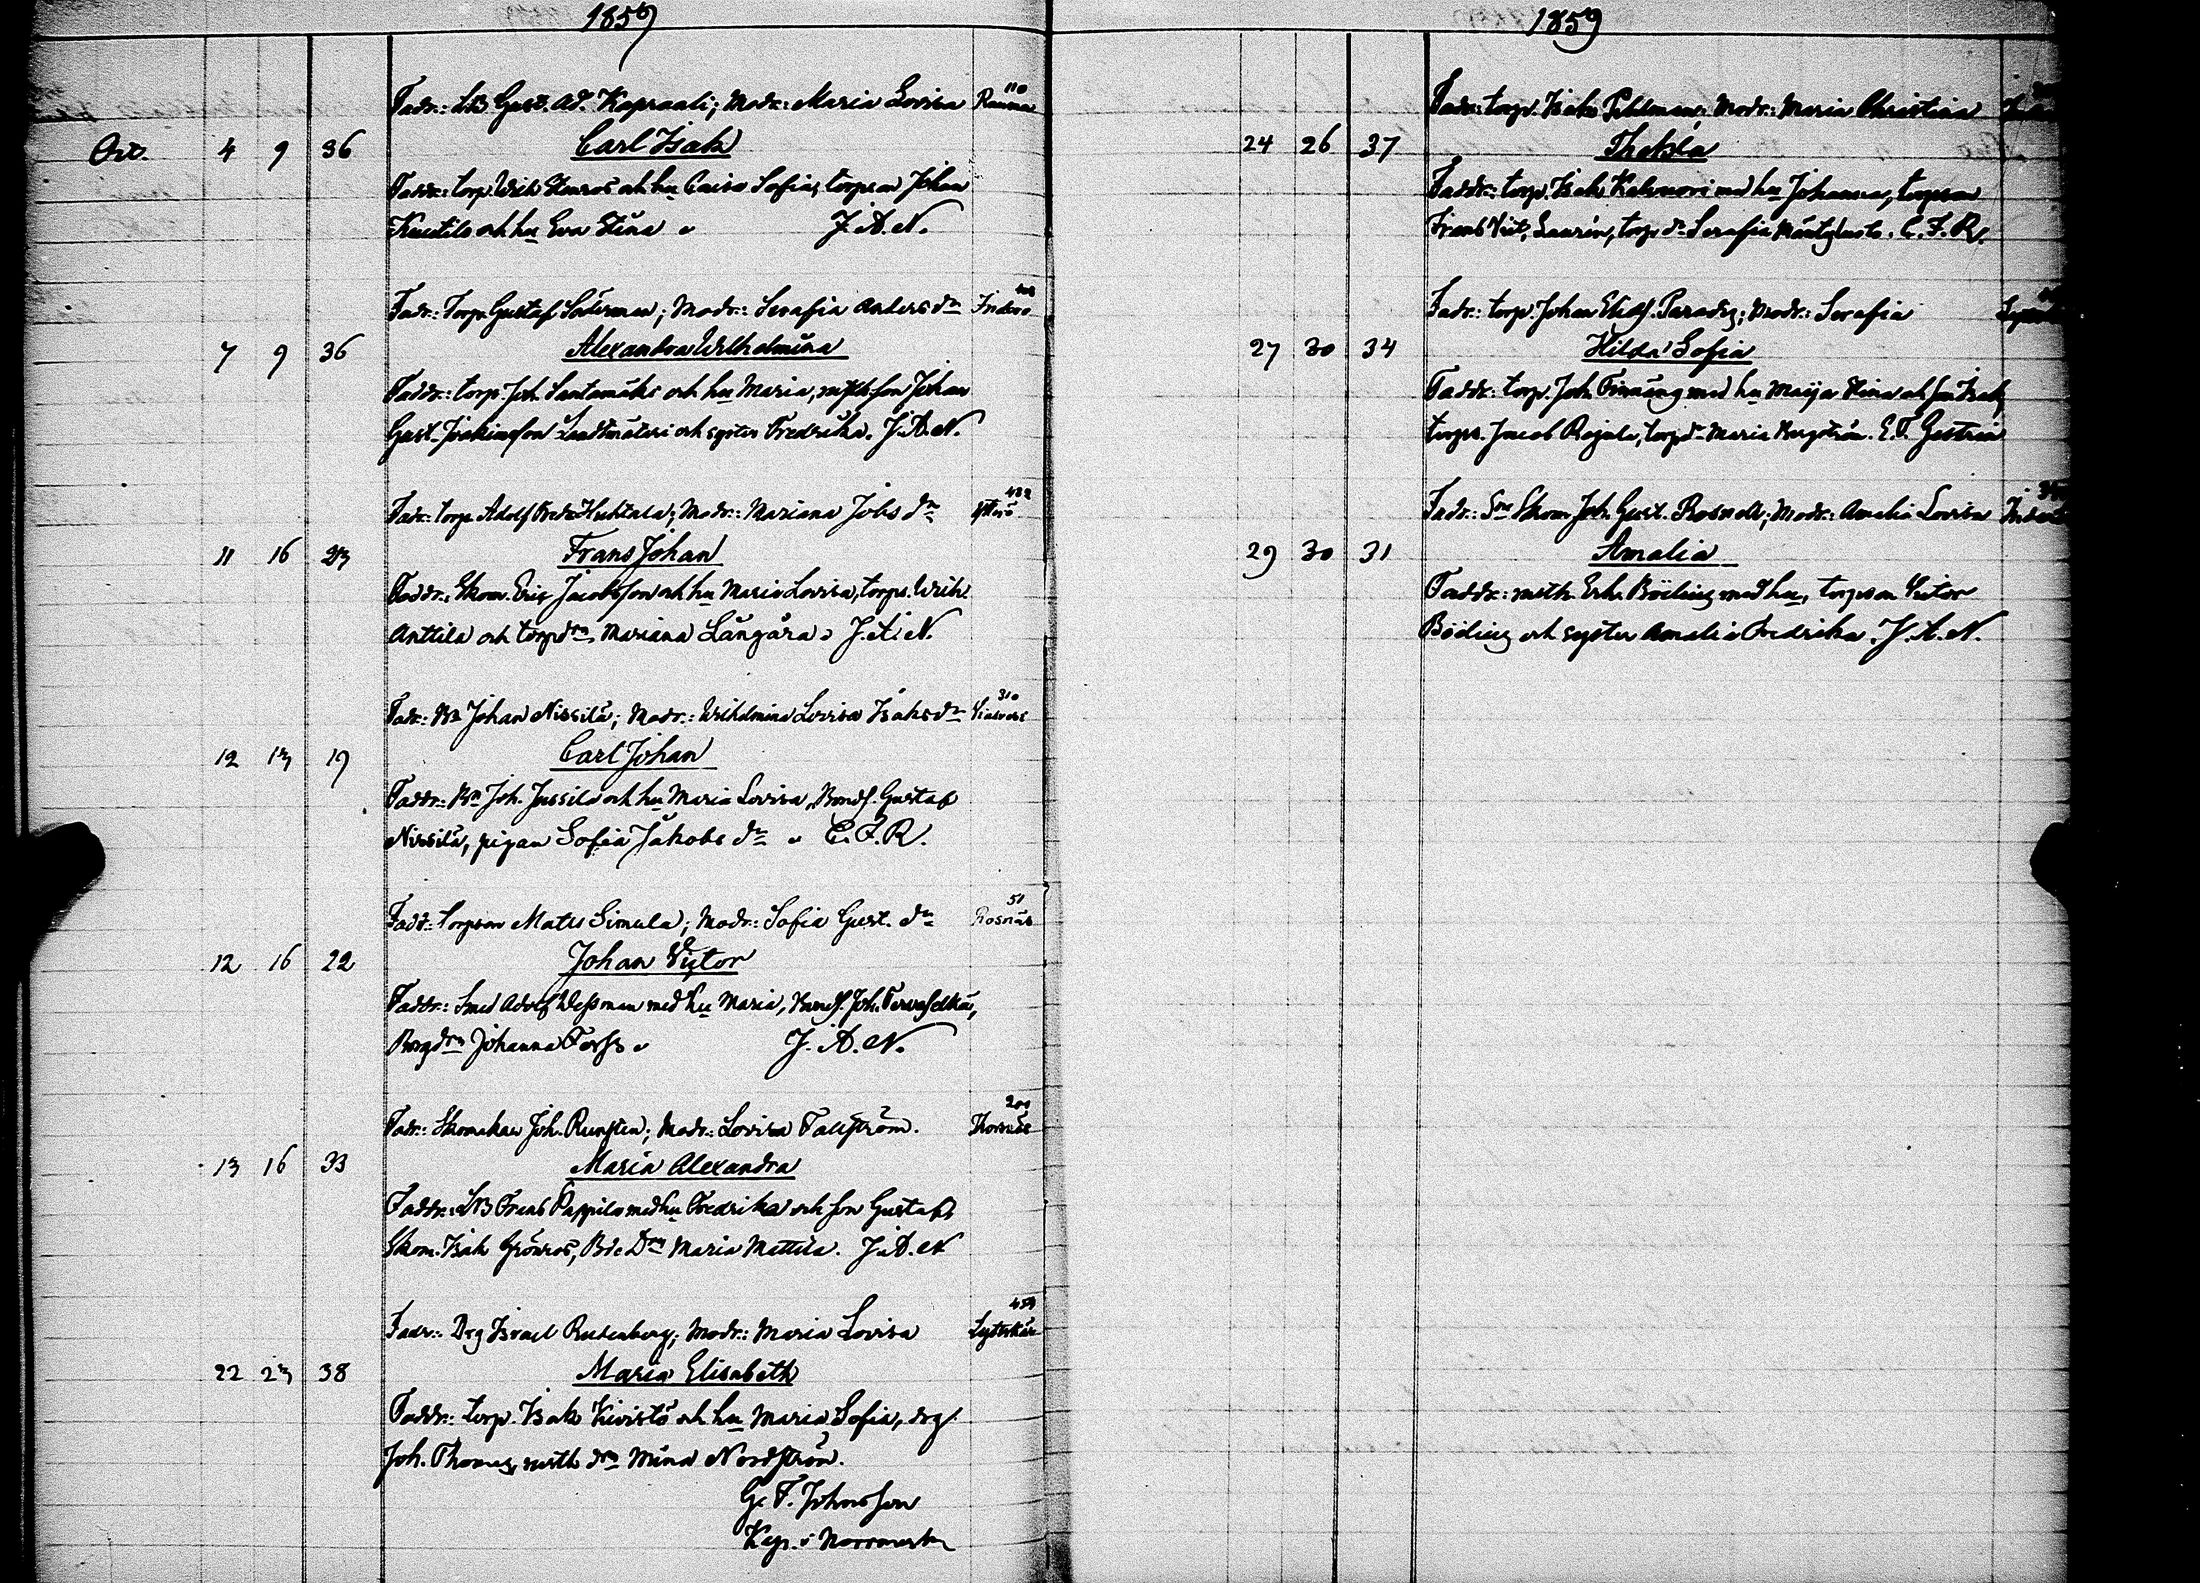 1859
Fadr: LB Gust. Ad. Kapraali; Modr: Maria Lovisa 110 Rauma
Oct. 4 9 36 Carl Isak
Faddr: torp. Wilh Stenros och hu Caisa Sofia, torpson Johan
och hu Eva Stina J. A. N.
Fadr: Torp. Gustaf Söderman; Modr: Serafia Anders dr Inderö
7 9 36 Alexandra Wilhelmina
Faddr: torp. Joh Santamäki och hu Maria, son Johan
Gust. Joakimsson och syster Fredrika. J. A. N.
Fadr: torp Adolf Fredr Huhtala; Modr: Mariana Johs dr 482 Ytterö
11 16 23 Frans Johan
Faddr: Skom. Eric Jacobsson och hu Maria Lovisa, torps. Wilh
Anttila och torpdrn Mariana Långåra J. A. N.
Fadr: Bn Johan Nissilä; Modr: Wilhelmina Lovisa Isaks dr 310
12 13 19 Carl Johan
Faddr: Bn Joh. Jussila och hu Maria Lovisa, Bonds. Gustaf
Nissilä, pigan Sofia Jakobs dr C. F. R.
Fadr: Torpson Mats Simula; Modr: Sofia Gust. dr 51 Rosnäs
12 16 22 Johan Victor
Faddr: Smed Adolf Wessman med hu Maria, Joh.
Johanna Forss J. A. N.
Fadr: Skomakar Joh. Runsten; Modr: Lovisa Tallström. 200 Thorsnäs
13 16 33 Maria Alexandra
Faddr: LB Frans Pappila med hu Fredrika och son Gustaf,
Skom. Isak Grönros, Bde Drn Maria Mattila. J. A. N
Fadr: Drg Israel Rutenberg; Modr: Maria Lovisa 459 Lyttskär
22 23 38 Maria Elisabeth
Faddr: torp. Isak Kivistö och hu Maria Sofia, drg
Joh. Thomas, drn Mina Nordström.
G. F. Johnsson
Kap. i Norrmark
1859
Fadr: torp. Isak Feldman; Modr: Maria Christina
24 26 37 Thekla
Faddr: torp. Isak med hu Johanna, torpson
Frans Vict. Laurén, torp dr Serafia C. F. R.
Fadr: torp. Johan Paradis; Modr: Serafia
27 30 34 Hilda Sofia
Faddr: torp. Joh. med hu Maija Stina och son Isak,
torps. Jacob Rajala, torpdr Maria Bergström. E. F. Gestrin
Fadr: Skom Joh. Gust. Rosnell; Modr: Amalia Lovisa
29 30 31 Amalia
Faddr: Erh. Böeling med hu, torpson Victor
Böeling och syster Amalia Fredrika. J. A. N.